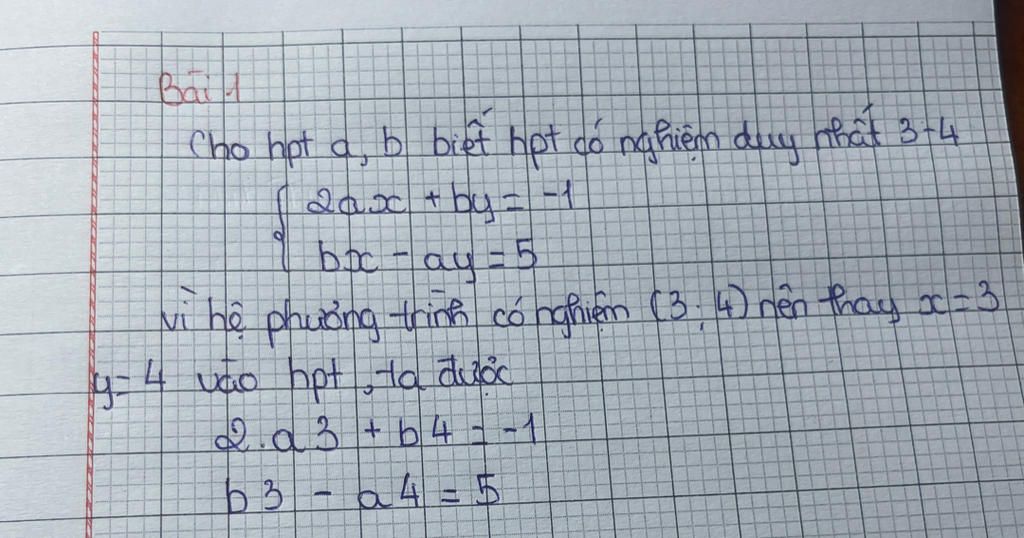 Bài 1
Cho hpt a, b biết hpt có nghiệm duy nhất 3-4
2ax + by = -1
bx - ay = 5
vì hệ phương trình có nghiệm (3; 4) nên thay x = 3
y = 4 vào hpt, ta được
2.a3 + b4 = -1
b3 - a4 = 5